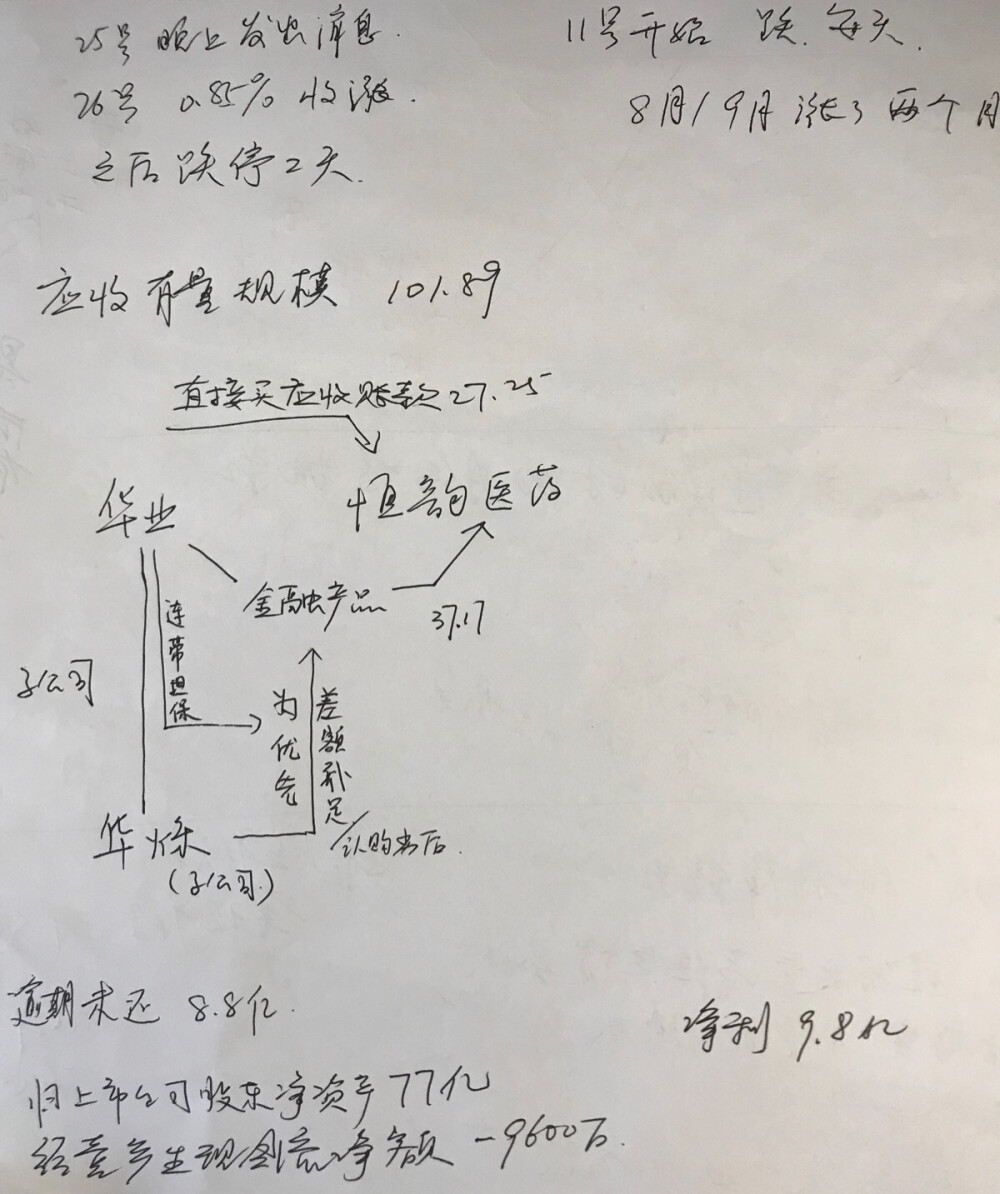 25号晚上发出消息.
11号开始 跌.每天.
26号 0.85% 收涨.
8月/9月涨了两个月
之后跌停2天.
应收存量规模 101.89
直接买应收账款27.25
恒韵医药
华业
金融产品
37.17
连带担保
子公司
为优先
差额补足
/认购劣后.
华烁
(子公司.)
逾期未还 8.8亿.
净利 9.8亿
归上市公司股东净资产77亿
经营产生现金流净额 -9600万.